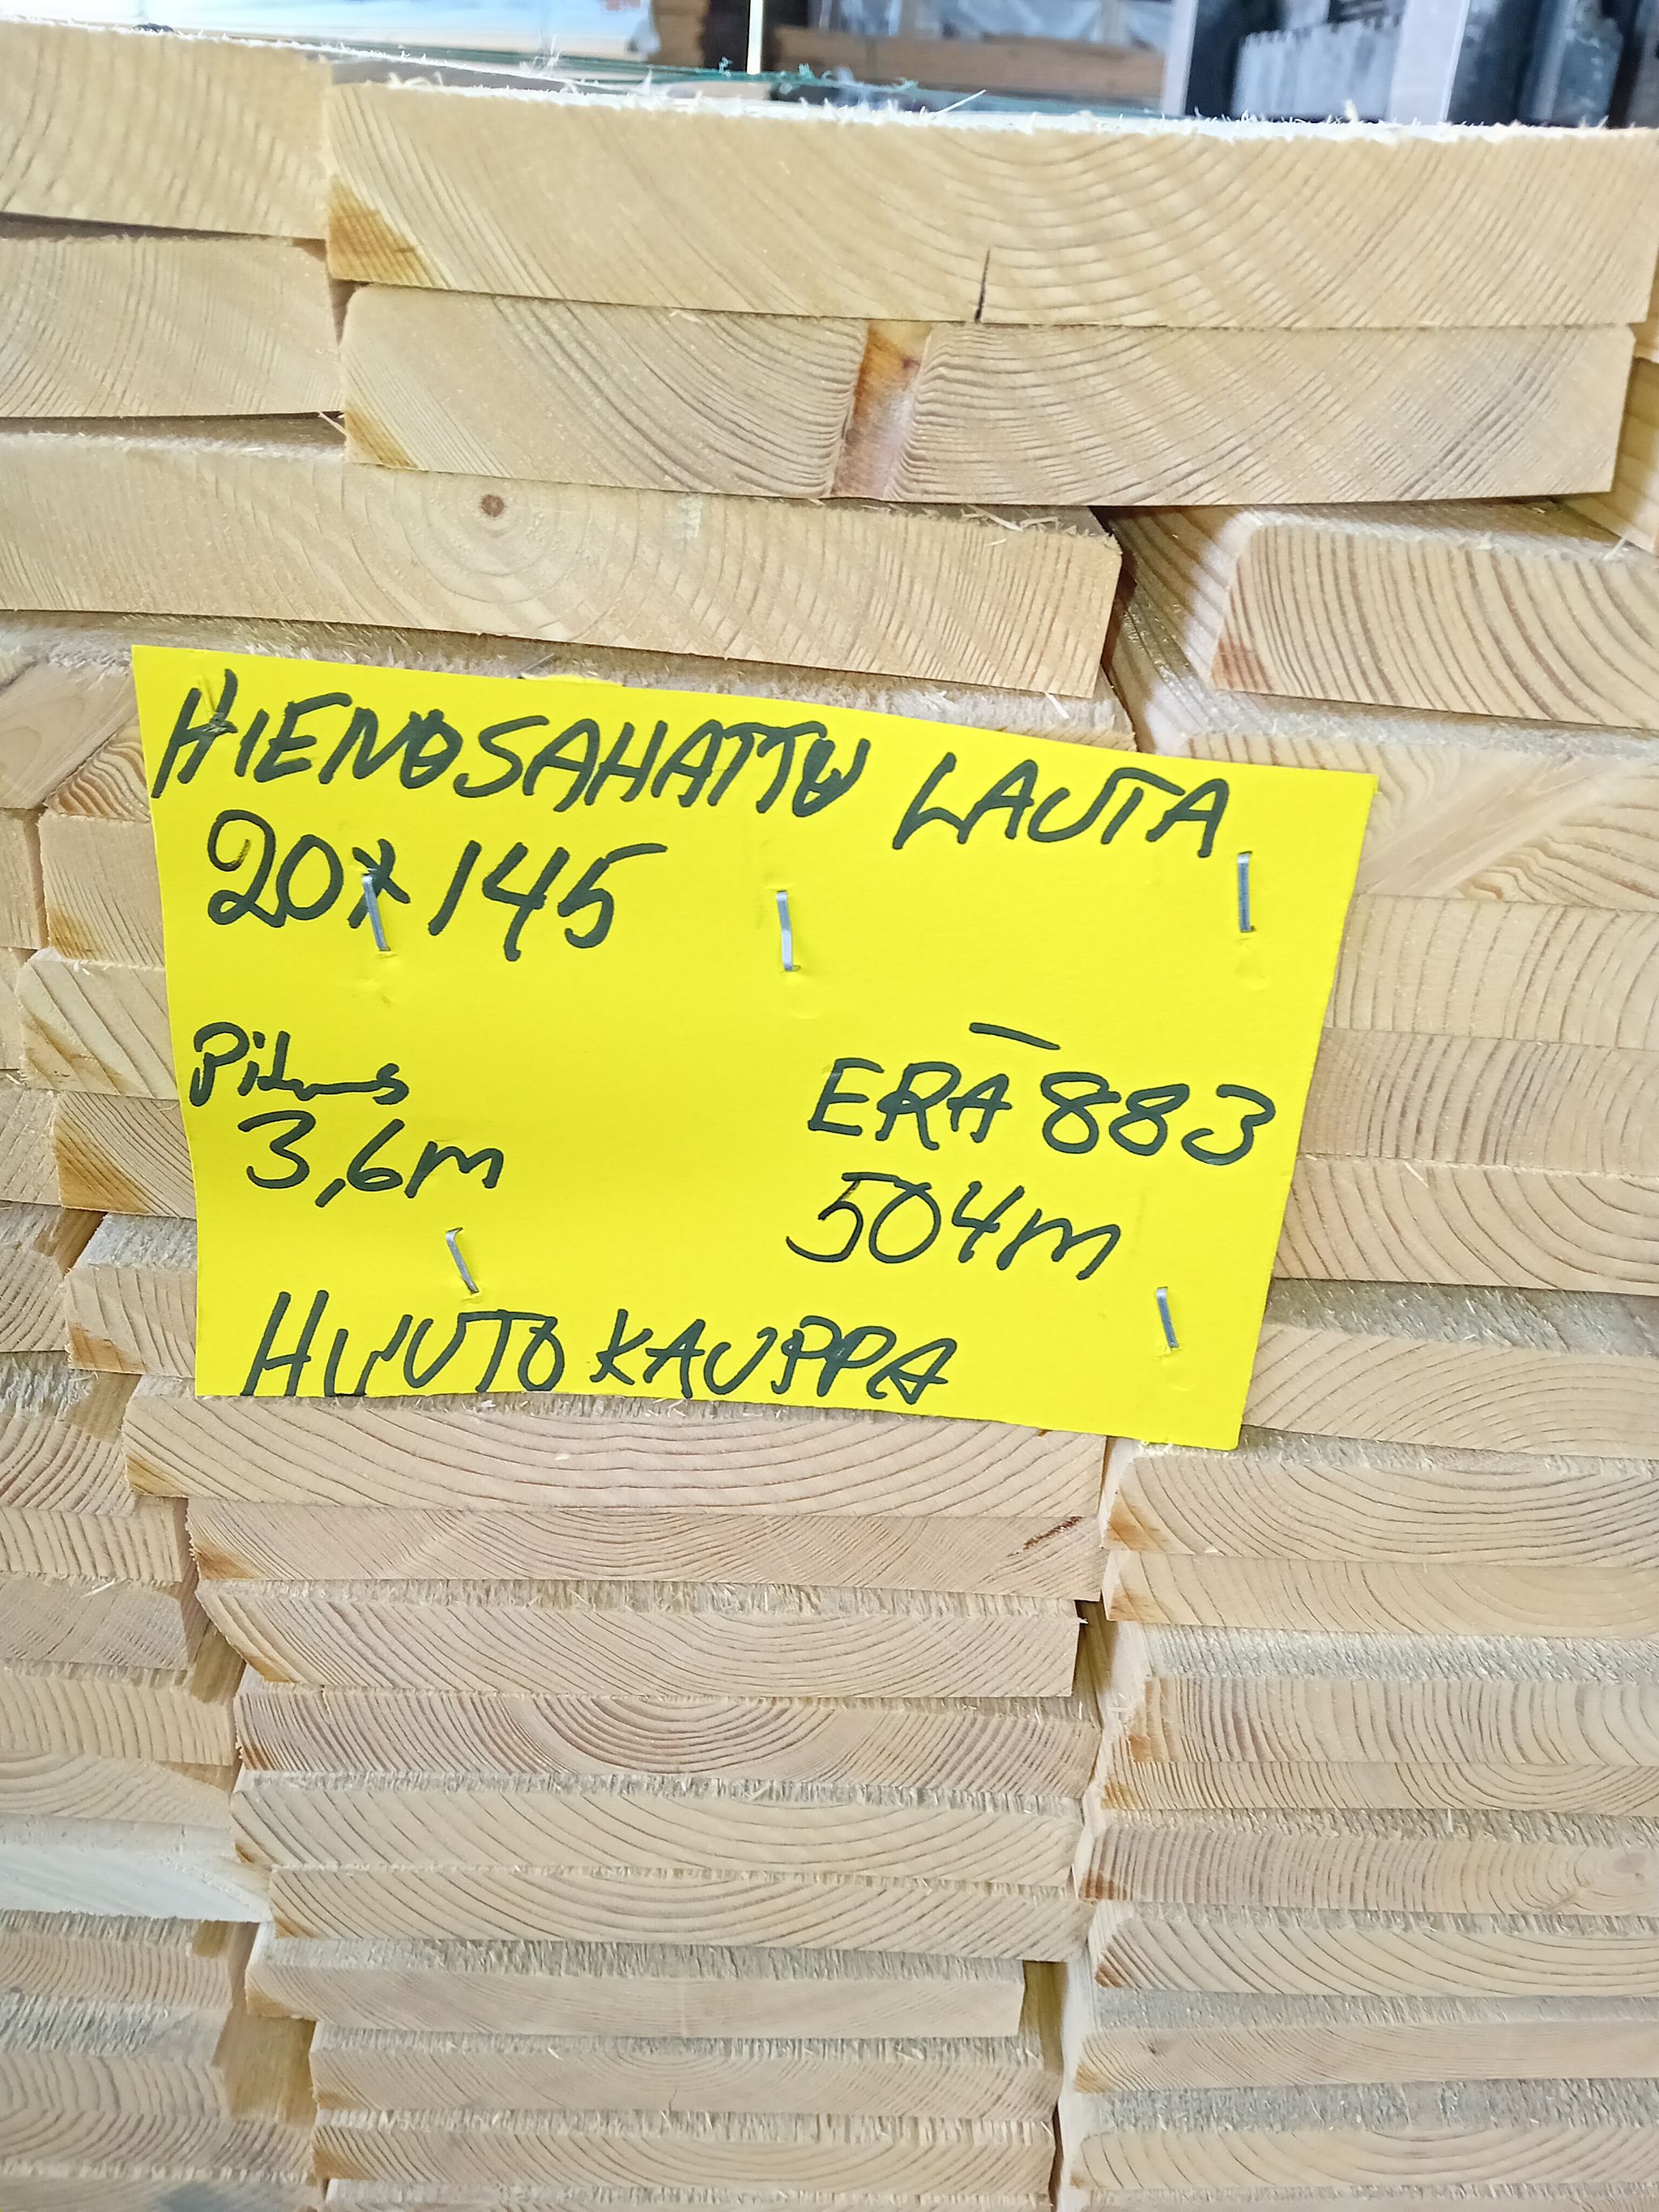 HIENOSAHATTU LAUTA
20x145
Pituus
3,6m
ERÄ 883
504m
HUUTOKAUPPA